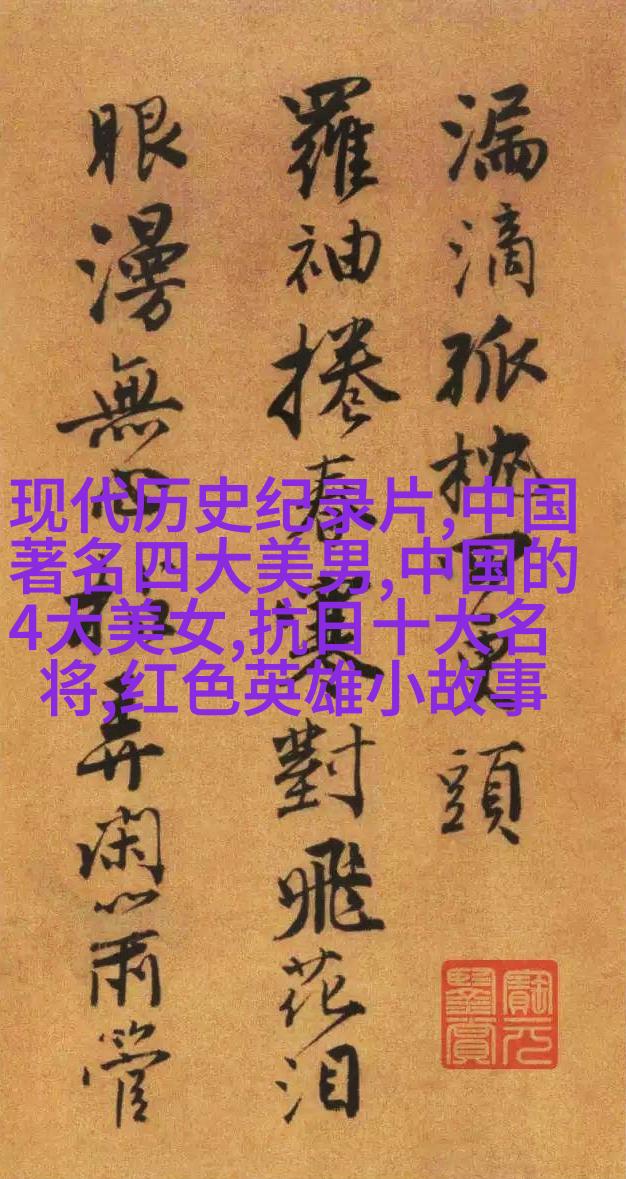 漏滴孤頭
羅袖捲春寒對飛花泪
眼漫無弄閑管
现代历史纪录片,中国
著名四大美男,中国的
4大美女,抗日十大名
将,红色英雄小故事